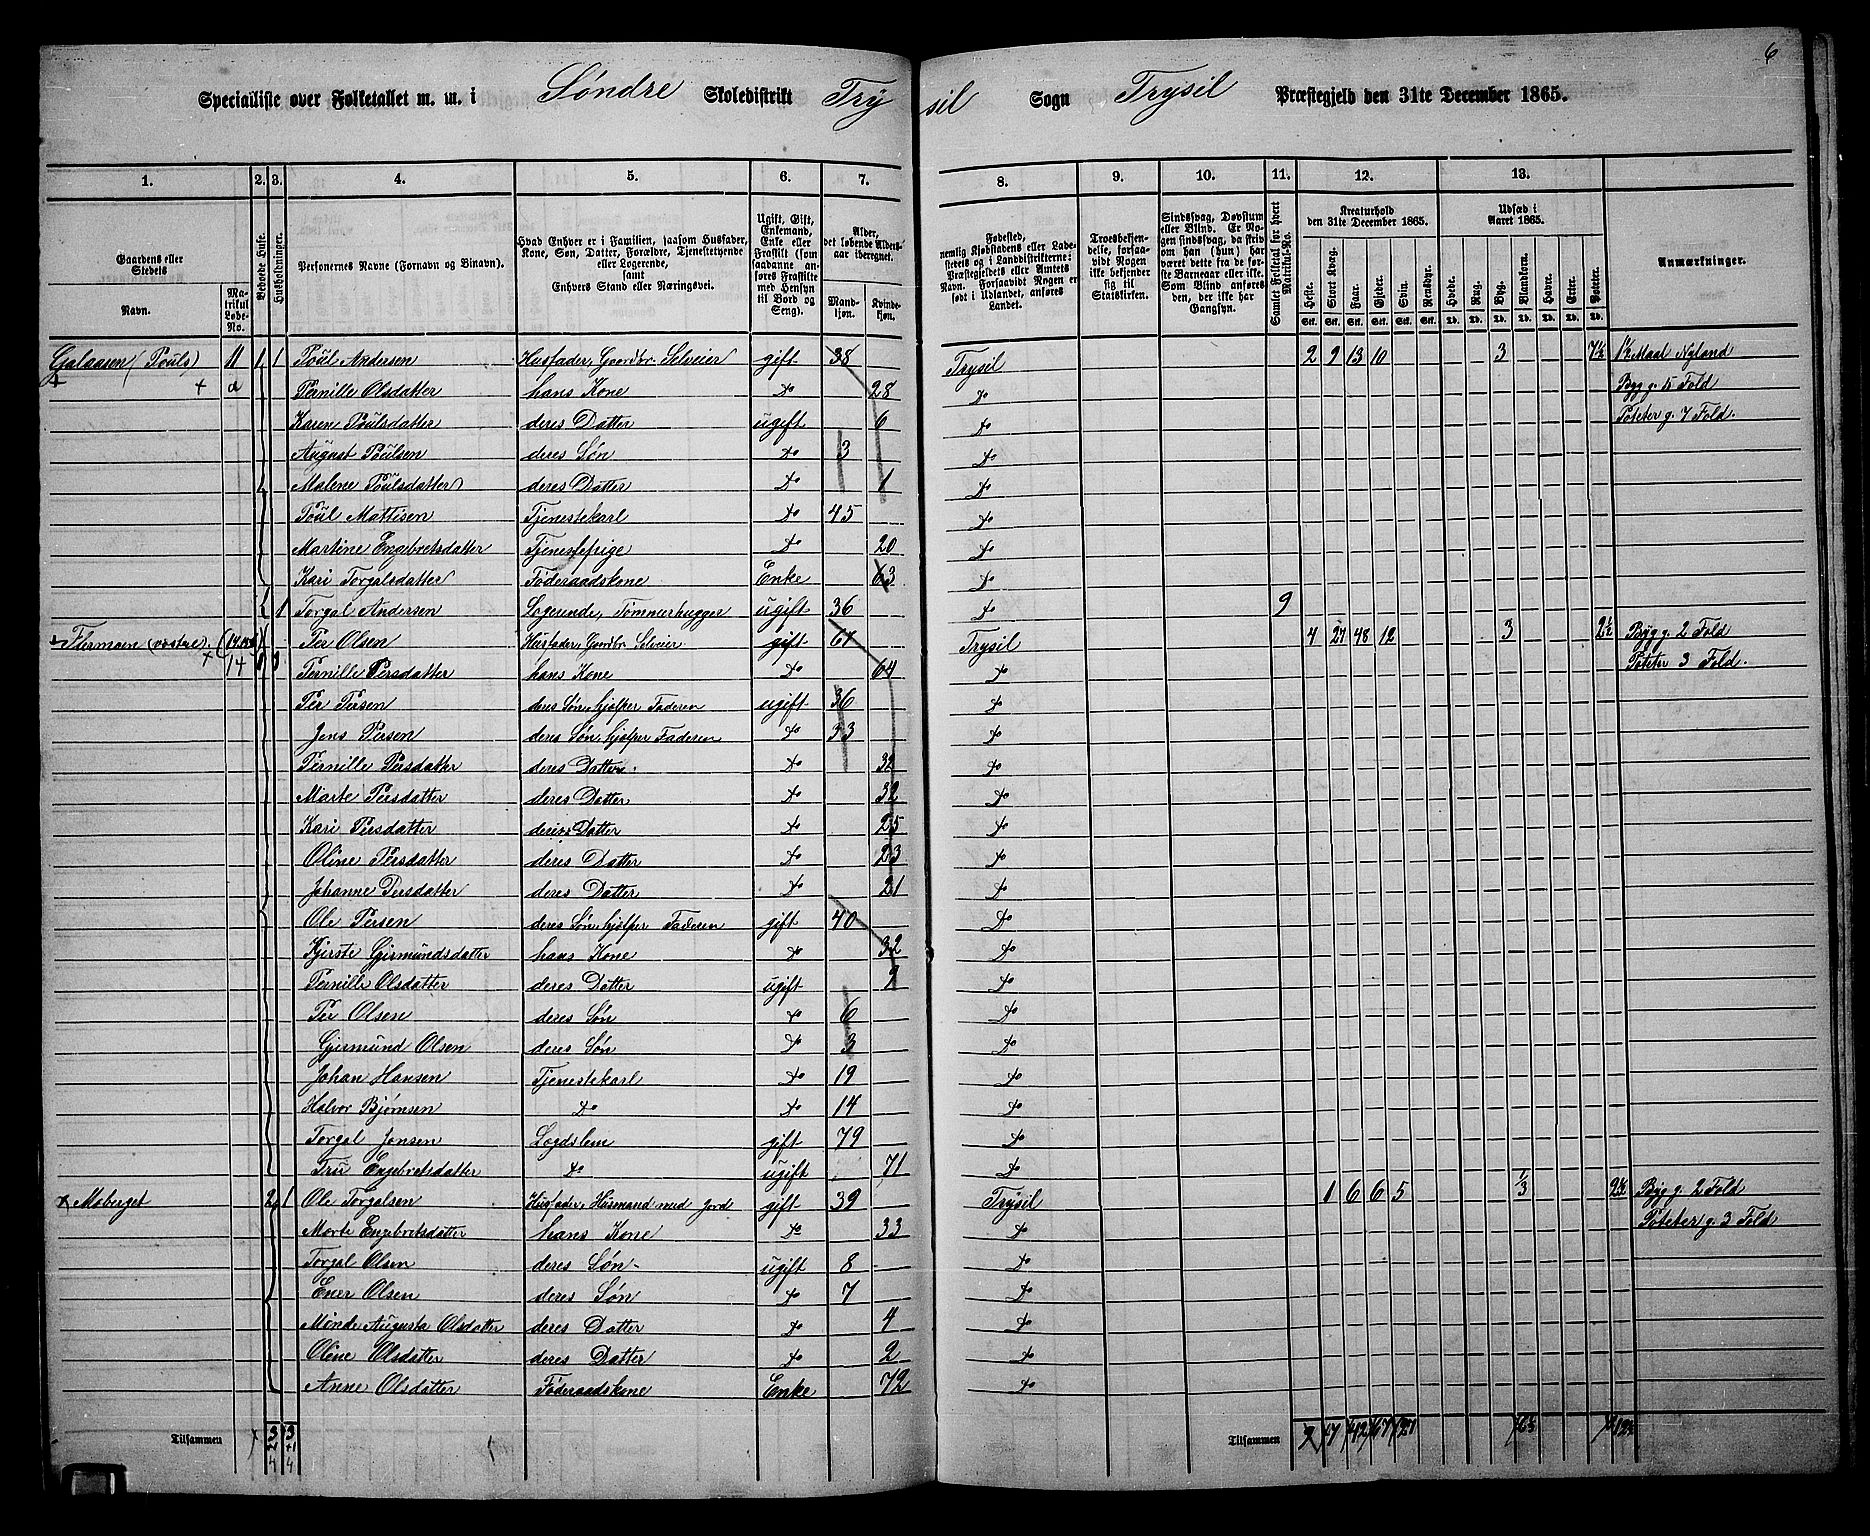 6
Specialliste over Folketallet m. m. i Søndre Skoledistrikt Trysil Sogn Trysil Præstegjeld den 31te December 1865.
1. 2. 3. 4. 5. 6. 7. 8. 9. 10. 11. 12. 13.
Gaardenes eller Stedets
Navn.
Matrikul Løbe-No.
Beboede Huse.
Husholdninger.
Personernes Navne (Fornavn og Binavn).
Hvad Enhver er i Familien, saasom Husfader, Kone, Søn, Datter, Forældre, Tjenestetyende eller Logerende,
samt
Enhvers Stand eller Næringsvei.
Ugift, Gift, Enkemand, Enke eller Fraskilt (som saadanne anføres Fraskilte med Hensyn til Bord og Seng).
Alder, det løbende Aldersaar iberegnet.
Mandkjøn.
Kvindekjøn.
Fødested, nemlig Kjøbstadens eller Ladestedets og i Landdistrikterne: Præstegjeldets eller Amtets Navn. Forsaavidt Nogen er født i Udlandet, anføres Landet.
Troesbekjendelse, forsaavidt Nogen ikke bekjender sig til Statskirken.
Sindssvag, Døvstum eller Blind. Er Nogen sindssvag, da skriv om han (hun) har været dette fra de første Barneaar eller ikke. Som Blind anføres den, der ikke har Gangsyn.
Samlet Folketal for hvert Matrikul-No.
Kreaturhold den 31te December 1865.
Heste. Stort Kvæg. Faar. Gjeder. Svin. Rensdyr.
Udsæd i Aaret 1865.
Hvede. Rug. Byg. Blandkorn. Havre. Erter. Poteter.
Anmærkninger.
Galaasen (Pouls) 11 1 1 Poul Andersen Husfader, Gaardbr. Selveier gift 38 Trysil 2 9 13 10 3 7½ 1½ Maal Nyland
a Pernille Olsdatter hans Kone do 28 do Byg g. 5 Fold
Karen Poulsdatter deres Datter ugift 6 do Poteter g. 7 Fold.
August Poulsen deres Søn do 3 do
Malene Poulsdatter deres Datter do 1 do
Poul Mattisen Tjenestekarl do 45 do
Martine Engebretsdatter Tjenestepige do 20 do
Kari Torgalsdatter Føderaadskone Enke 63 do
1 Torgal Andersen Logerende, Tømmerhugger ugift 36 do 9
Flermoen (vestre) 14 3 Per Olsen Husfader, Gaardbr. Selveier gift 61 Trysil 4 27 48 12 3 2½ Byg g. 2 Fold
Pernille Persdatter hans Kone do 64 do Poteter 3 Fold.
Per Persen deres Søn, hjælper Faderen ugift 36 do
Jens Persen deres Søn, hjælper Faderen do 33 do
Pernille Persdatter deres Datter do 32 do
Marte Persdatter deres Datter do 32 do
Kari Persdatter deres Datter do 25 do
Oline Persdatter deres Datter do 23 do
Johanne Persdatter deres Datter do 21 do
Ole Persen deres Søn, hjælper Faderen gift 40 do
Kjerste Gjermundsdatter hans Kone do 32 do
Pernille Olsdatter deres Datter ugift 9 do
Per Olsen deres Søn do 6 do
Gjermund Olsen deres Søn do 3 do
Johan Hansen Tjenestekarl do 19 do
Halvor Bjørnsen do do 14 do
Torgal Jonsen Lægdslem gift 79 do
Tru Engebretsdatter do ugift 71 do
Moberget 2 1 Ole Torgalsen Husfader, Husmand med Jord gift 39 Trysil 1 6 6 5 ⅓ 2½ Byg g. 2 Fold
Marte Engebretsdatter hans Kone do 33 do Poteter g. 3 Fold
Torgal Olsen deres Søn ugift 8 do
Ener Olsen deres Søn do 7 do
Minde Augusta Olsdatter deres Datter do 4 do
Oline Olsdatter deres Datter do 2 do
Anne Olsdatter Føderaadskone Enke 72 do
Tilsammen 3 3 Tilsammen
+1 +1
4 4